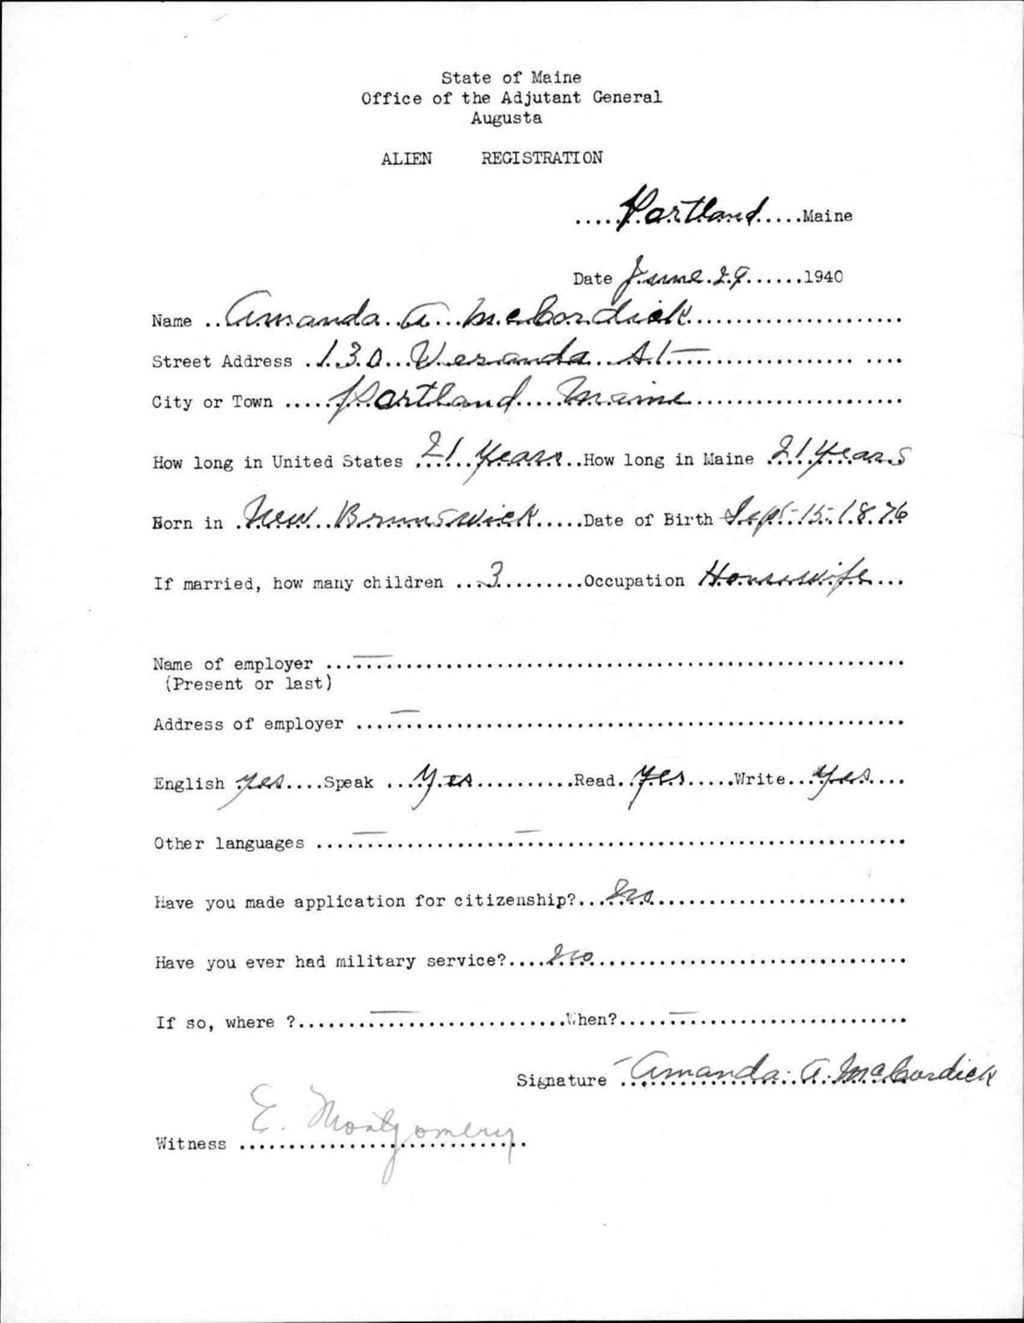 State of Maine
Office of the Adjutant General
Augusta
ALIEN REGISTRATION
.....Portland.....Maine
Date June 29......1940
Name ..Amanda A McCordick......................
Street Address .130 Veranda St.................. ....
City or Town .....Portland Maine.....................
How long in United States 21 Years..How long in Maine 21 years
Born in .New Brunswick.....Date of Birth Sept-15-1876
If married, how many children ...3.........Occupation Housewife...
Name of employer ...—.......................................................
(Present or last)
Address of employer ...—....................................................
English yes....Speak ...Yes..........Read..yes.....Write...yes....
Other languages ...—............—.......................................
Have you made application for citizenship?...No..........................
Have you ever had military service?....No................................
If so, where ?.......—....................When?.....—......................
Signature Amanda A. McCordick
Witness E. Montgomery